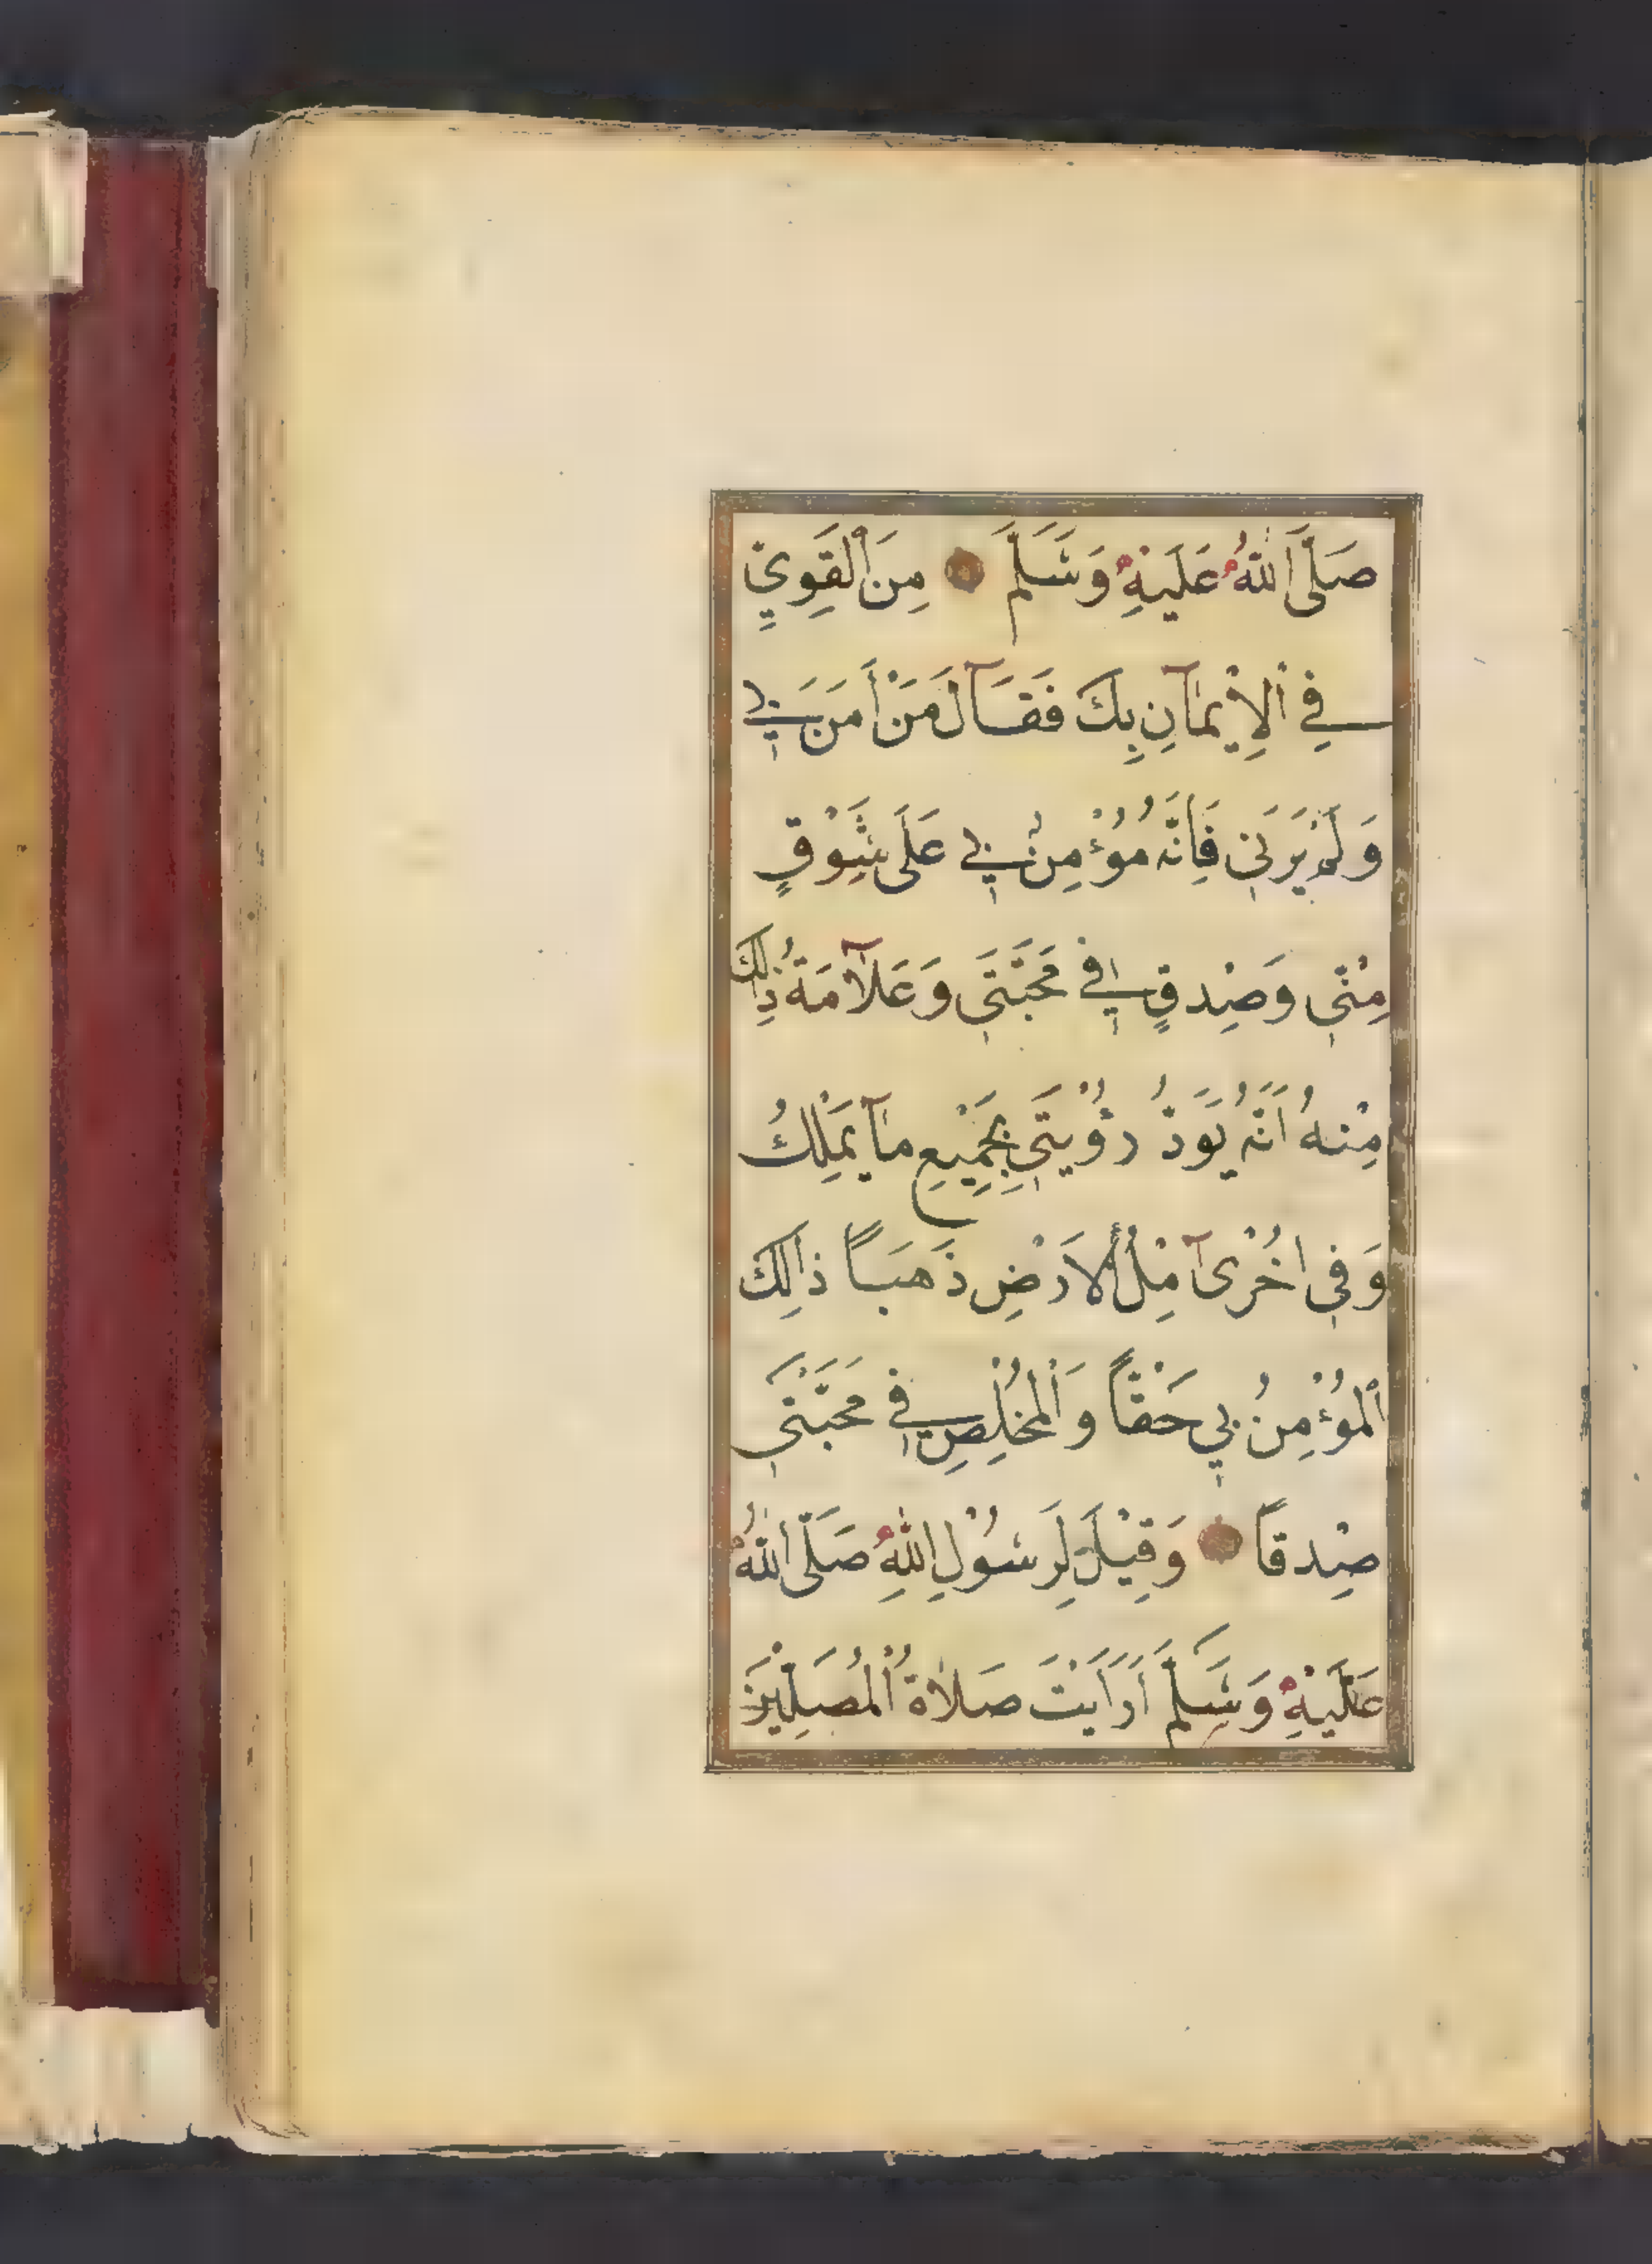 صَلَّى اللهُ عَلَيهِ وَسَلَّمَ مِنَ الْقَوِيِّ
فِي الْاِيْمَانِ بِكَ فَقَالَ مَنْ اٰمَنَ بِي
وَلَمْ يَرَنِي فَاِنَّهُ مُؤْمِنٌ بِي عَلَى شَوْقٍ
مِنِّي وَصِدقٍ فِي مَحَبَّتِي وَعَلَامَةُ ذٰلِكَ
مِنْهُ اَنَّهُ يَوَدُّ رُؤْيَتِي بِجَمِيْعِ مَا يَمْلِكُ
وَفِي اُخْرٰى مِلْأُ الْاَرْضِ ذَهَبًا ذَالِكَ
الْمُؤْمِنُ بِي حَقًّا وَالْمُخْلِصُ فِي مَحَبَّتِي
صِدقًا وَقِيْلَ لِرَسُوْلِ اللهِ صَلَّى اللهُ
عَلَيْهِ وَسَلَّمَ اَرَاَيْتَ صَلَاةَ الْمُصَلِّيْنَ